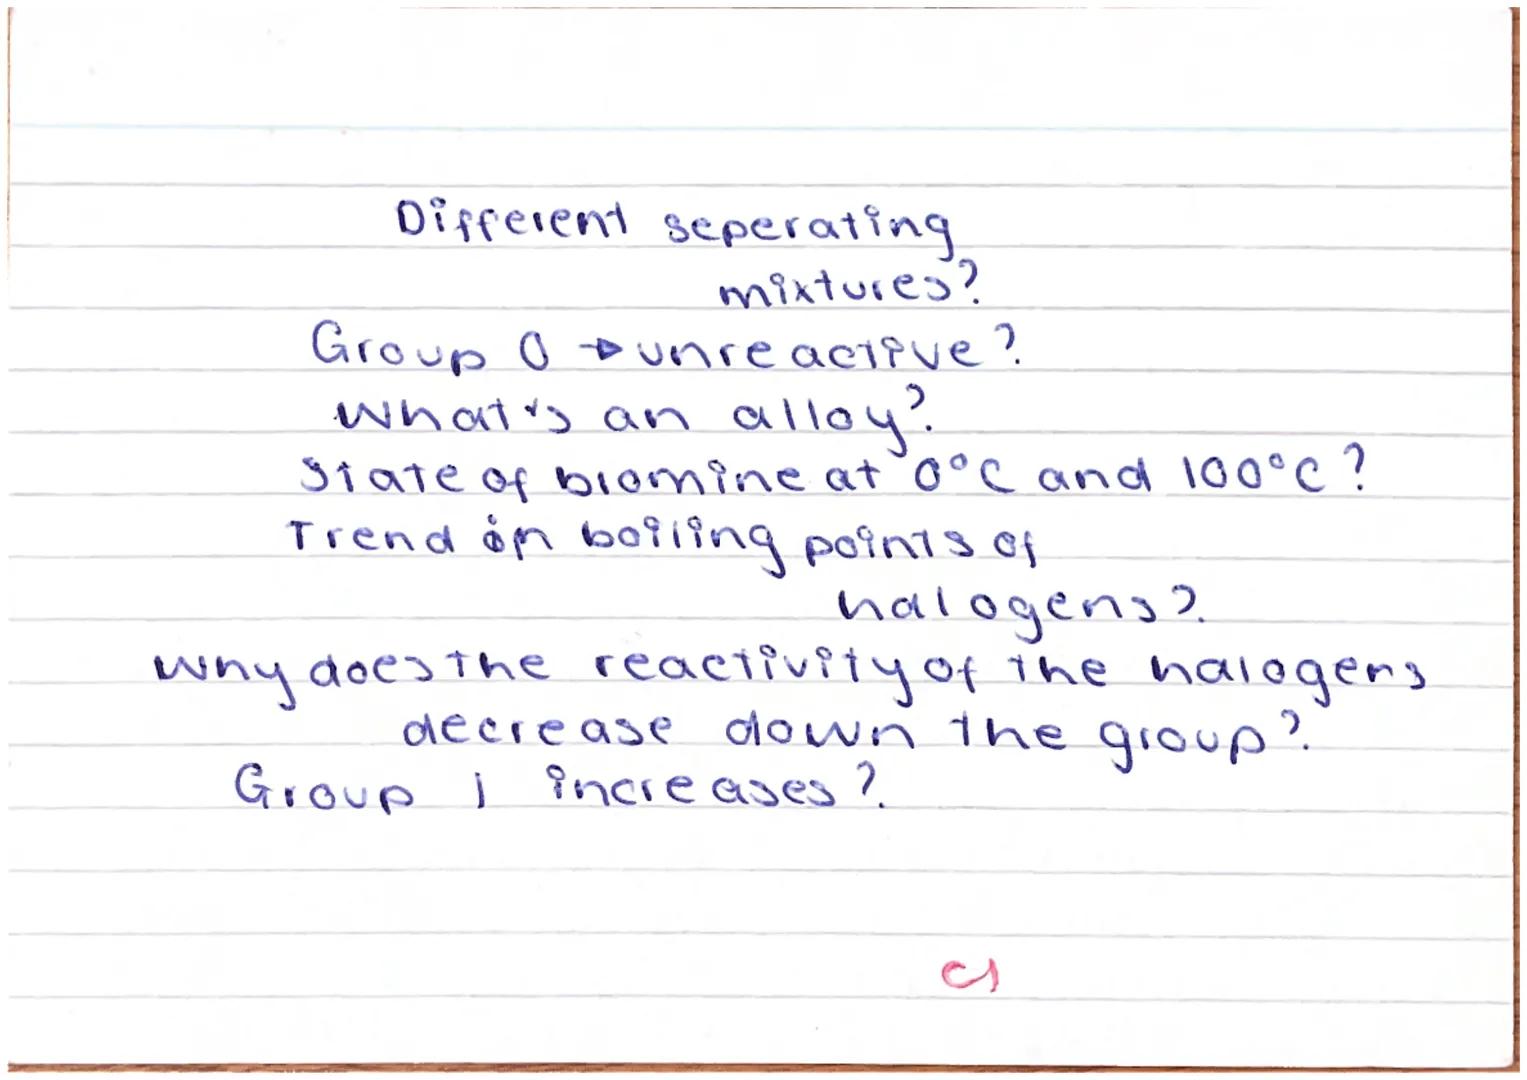 Different seperating
mixtures?
Group 0 → unreactive?
What's an alloy?
State of bromine at 0°C and 100°C?
Trend in boiling points of
halogens?
Why does the reactivity of the halogens
decrease down the group?
Group 1 increases?
C1